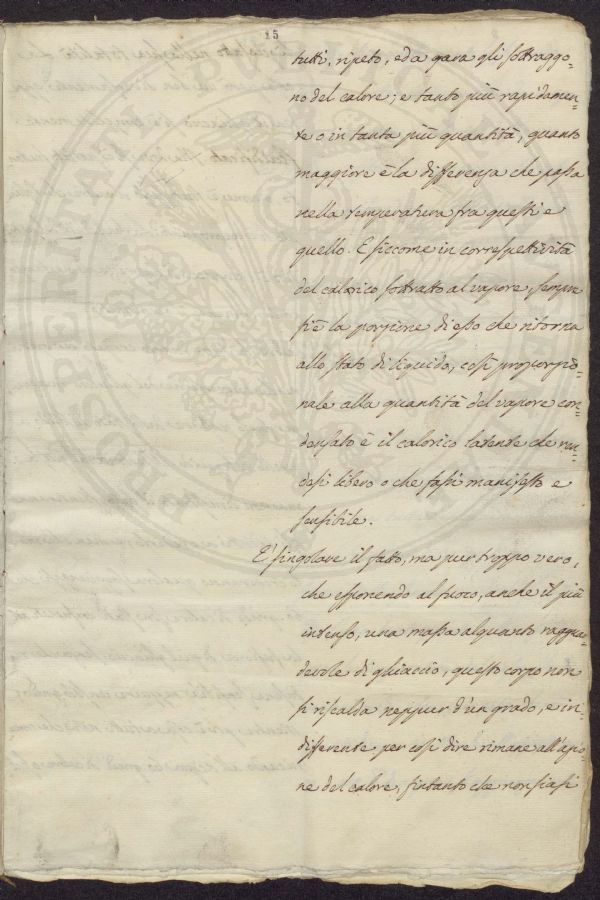 15
tutti, ripeto, ed a gara gli sottraggo-
no del calore; e tanto più rapidamen-
te o in tanta più quantità, quanto
maggiore è la differenza che passa
nella temperatura fra questi e
quello. E siccome in correspettività
del calorico sottratto al vapore, sempre
si è la porzione di esso che ritorna
allo stato di liquido, così proporzio-
nale alla quantità del vapore con-
densato è il calorico latente che ren-
desi libero o che fassi manifesto e
sensibile.
E' singolare il fatto, ma pur troppo vero,
che esponendo al fuoco, anche il più
intenso, una massa alquanto raggua-
devole di ghiaccio, questo corpo non
si riscalda neppur d'un grado, e in-
differente per così dire rimane all'azio-
ne del calore, fintanto che non siasi